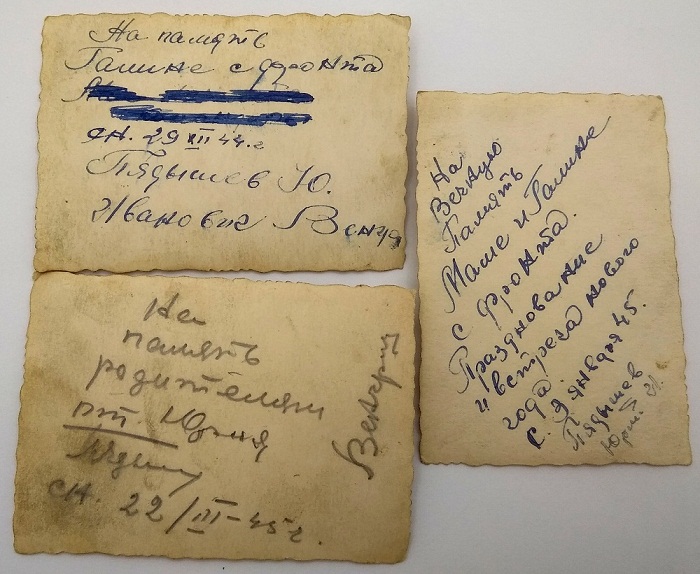 На память
Галине с фронта
сн. 29 XII 44. г
Пядышев Ю.
Иванович
На
память
родителям
от Юрия
сн. 22/III-45 г.
Венгрия
На
Вечную
Память
Маше и Галине
с фронта.
Празднование
и встреча нового
года.
с. 2 января 45.
Пядышев
Юрий И.